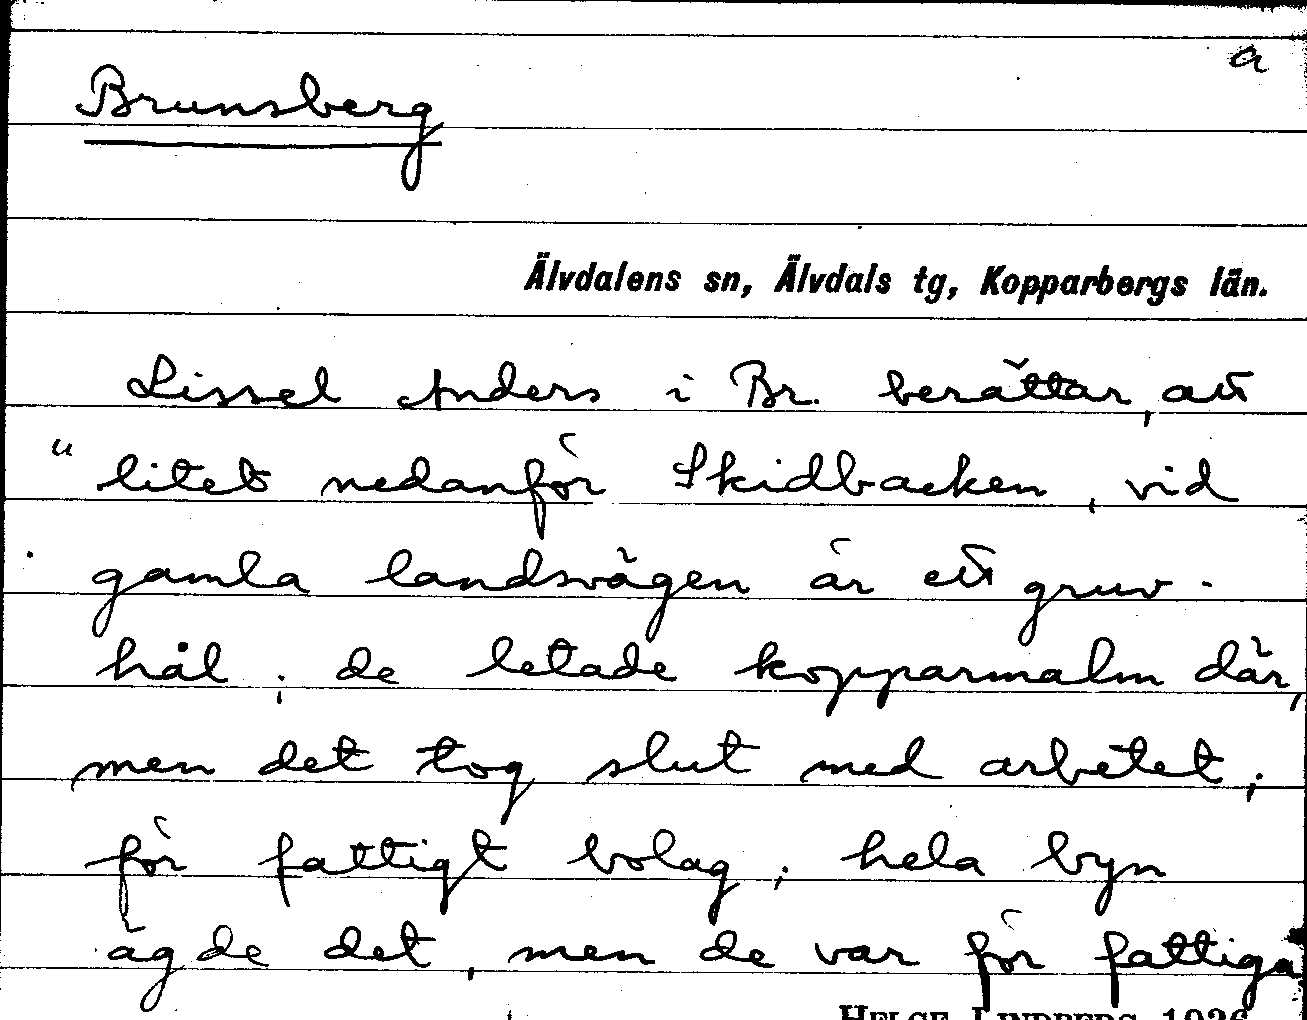 a
Brunsberg
Älvdalens sn, Älvdals tg, Kopparbergs län.
Lissel Anders i Br. berättar, att
"litet nedanför Skidbacken, vid
gamla landsvägen är ett gruv-
hål; de letade kopparmalm där,
men det tog slut med arbetet;
för fattigt bolag; hela byn
ägde det, men de var för fattiga
HELGE LINDBERG 1926